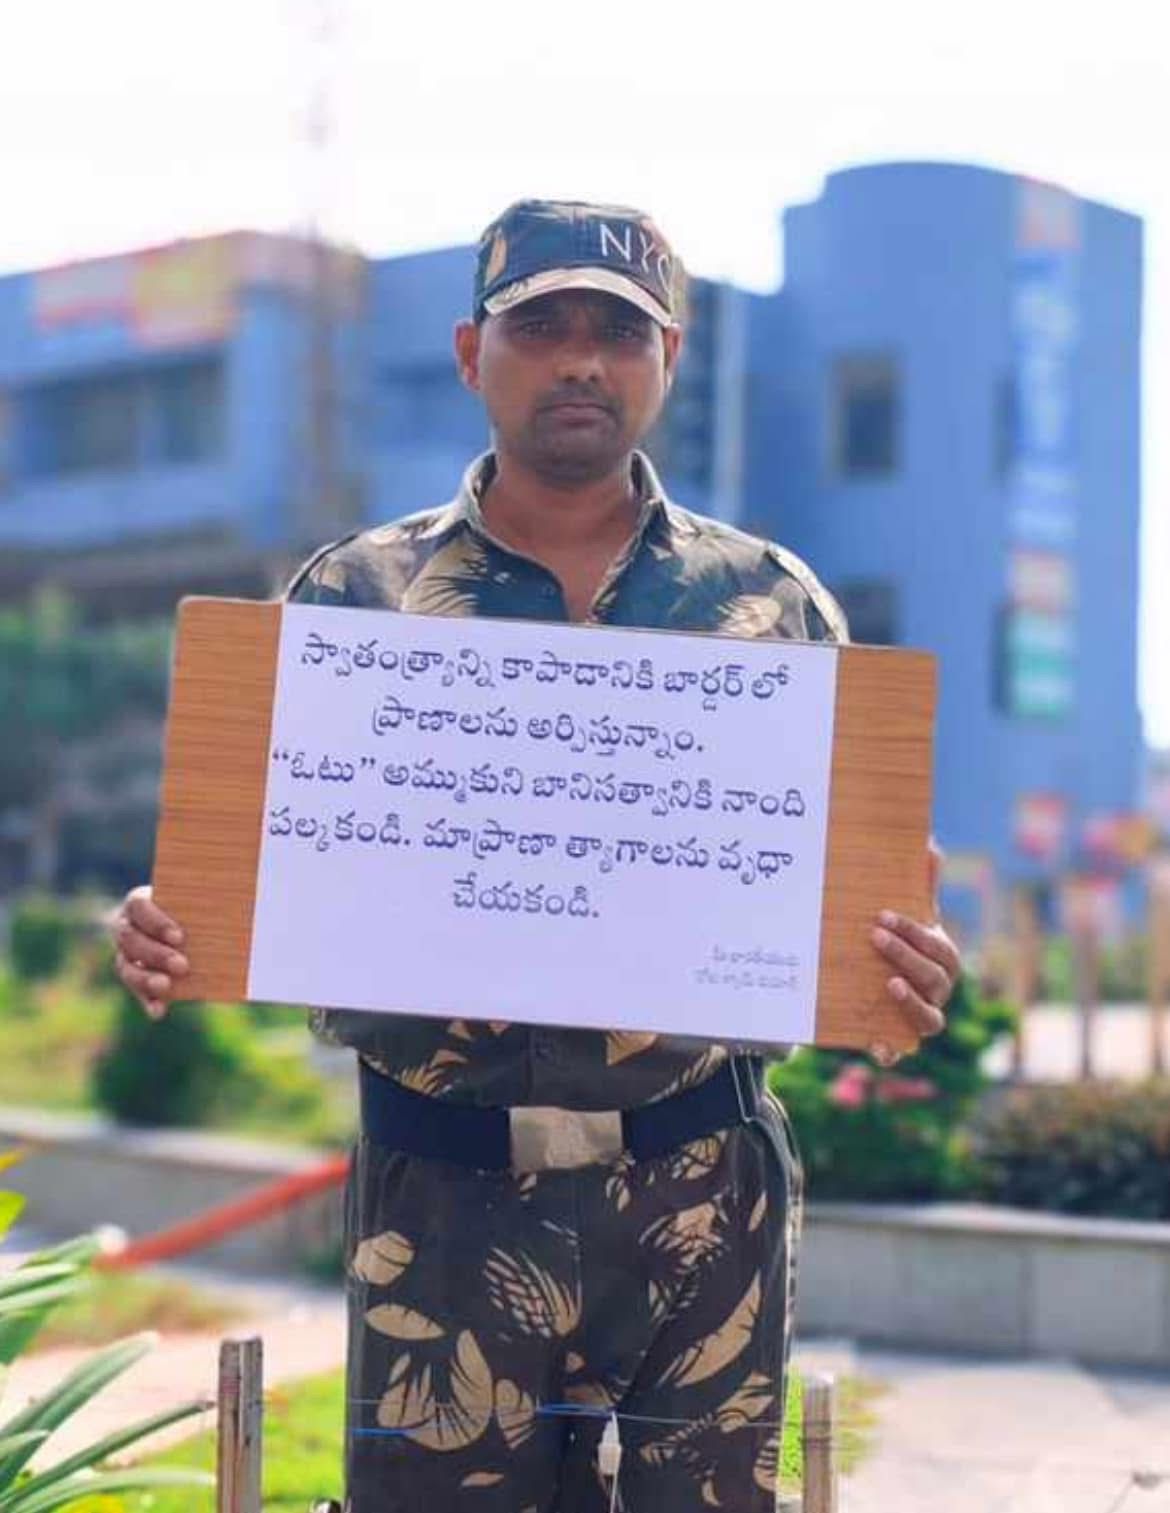 NYC
స్వాతంత్ర్యాన్ని కాపాడానికి బార్డర్ లో
ప్రాణాలను అర్పిస్తున్నాం.
“ఓటు” అమ్ముకుని బానిసత్వానికి నాంది
పల్కకండి. మాప్రాణా త్యాగాలను వృధా
చేయకండి.